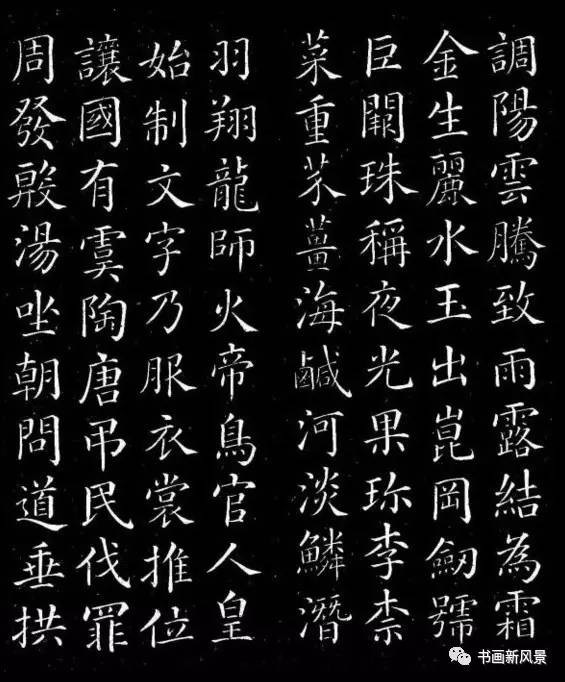 調陽雲騰致雨露結為霜
金生麗水玉出崑岡劒號
巨闕珠稱夜光果珎李柰
菜重芥薑海鹹河淡鱗潛
羽翔龍師火帝鳥官人皇
始制文字乃服衣裳推位
讓國有虞陶唐弔民伐罪
周發殷湯坐朝問道垂拱
书画新风景